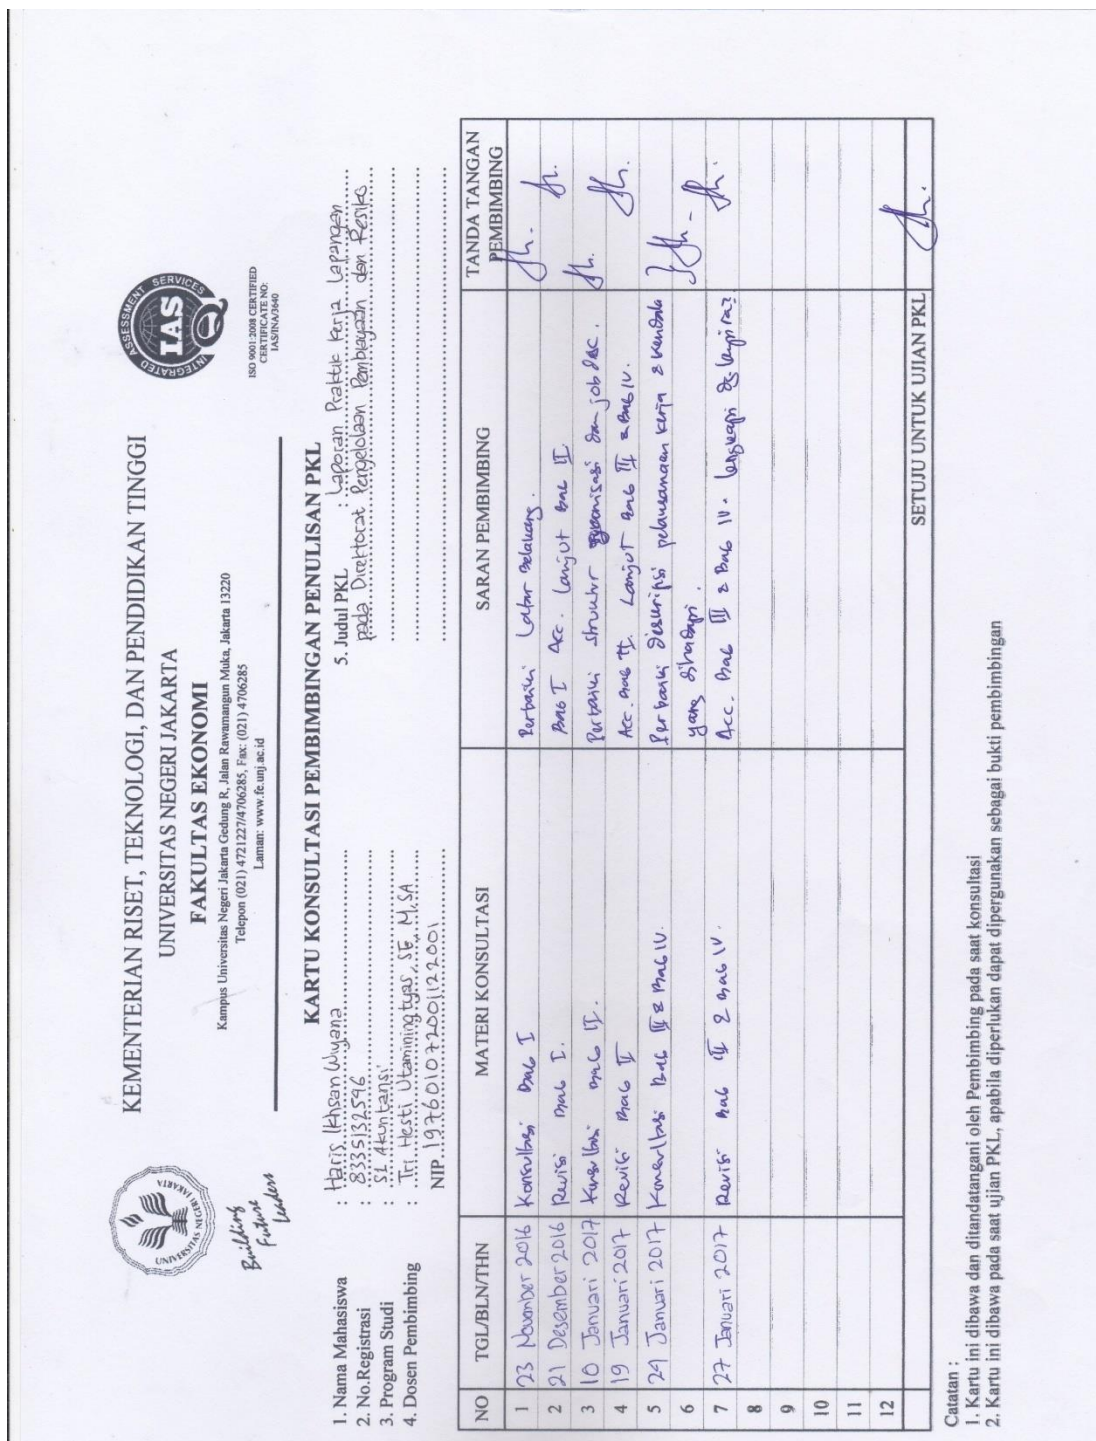 KEMENTERIAN RISET, TEKNOLOGI, DAN PENDIDIKAN TINGGI
UNIVERSITAS NEGERI JAKARTA
FAKULTAS EKONOMI
Kampus Universitas Negeri Jakarta Gedung R, Jalan Rawamangun Muka, Jakarta 13220
Telepon (021) 4721227/4706285, Fax: (021) 4706285
Laman: www.fe.unj.ac.id
UNIVERSITAS NEGERI JAKARTA
Building
Future
Leaders
INTEGRATED ASSESSMENT SERVICES
IAS
ISO 9001:2008 CERTIFIED
CERTIFICATE NO:
IAS/INA/3640
KARTU KONSULTASI PEMBIMBINGAN PENULISAN PKL
1. Nama Mahasiswa : Haris Ikhsan Wiyana
2. No.Registrasi : 8335132596
3. Program Studi : S1 Akuntansi
4. Dosen Pembimbing : Tri Hesti Utaminingtyas, SE, M.SA
NIP. 197601072001122001
5. Judul PKL : Laporan Praktik Kerja Lapangan
pada Direktorat Pengelolaan Pembiayaan dan Resiko
NO TGL/BLN/THN MATERI KONSULTASI SARAN PEMBIMBING TANDA TANGAN PEMBIMBING
1 23 November 2016 Konsultasi Bab I Perbaiki Latar Belakang.
2 21 Desember 2016 Revisi Bab I. Bab I Acc. Lanjut Bab II
3 10 Januari 2017 Konsultasi Bab II. Perbaiki struktur organisasi dan job desc.
4 19 Januari 2017 Revisi Bab II Acc. Bab II. Lanjut Bab III & Bab IV.
5 24 Januari 2017 Konsultasi Bab III & Bab IV. Perbaiki deskripsi pelaksanaan kerja & kendala
6 yang dihadapi.
7 27 Januari 2017 Revisi Bab III & Bab IV. Acc. Bab III & Bab IV. Lengkapi
8
9
10
11
12
SETUJU UNTUK UJIAN PKL
Catatan :
1. Kartu ini dibawa dan ditandatangani oleh Pembimbing pada saat konsultasi
2. Kartu ini dibawa pada saat ujian PKL, apabila diperlukan dapat dipergunakan sebagai bukti pembimbingan